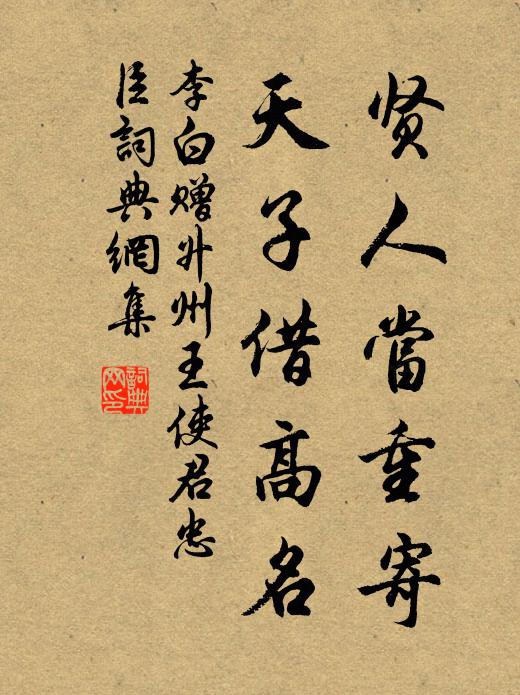 贤人當重寄
天子借高名
李白赠升州王使君忠
臣詞典網集
詞典
网印